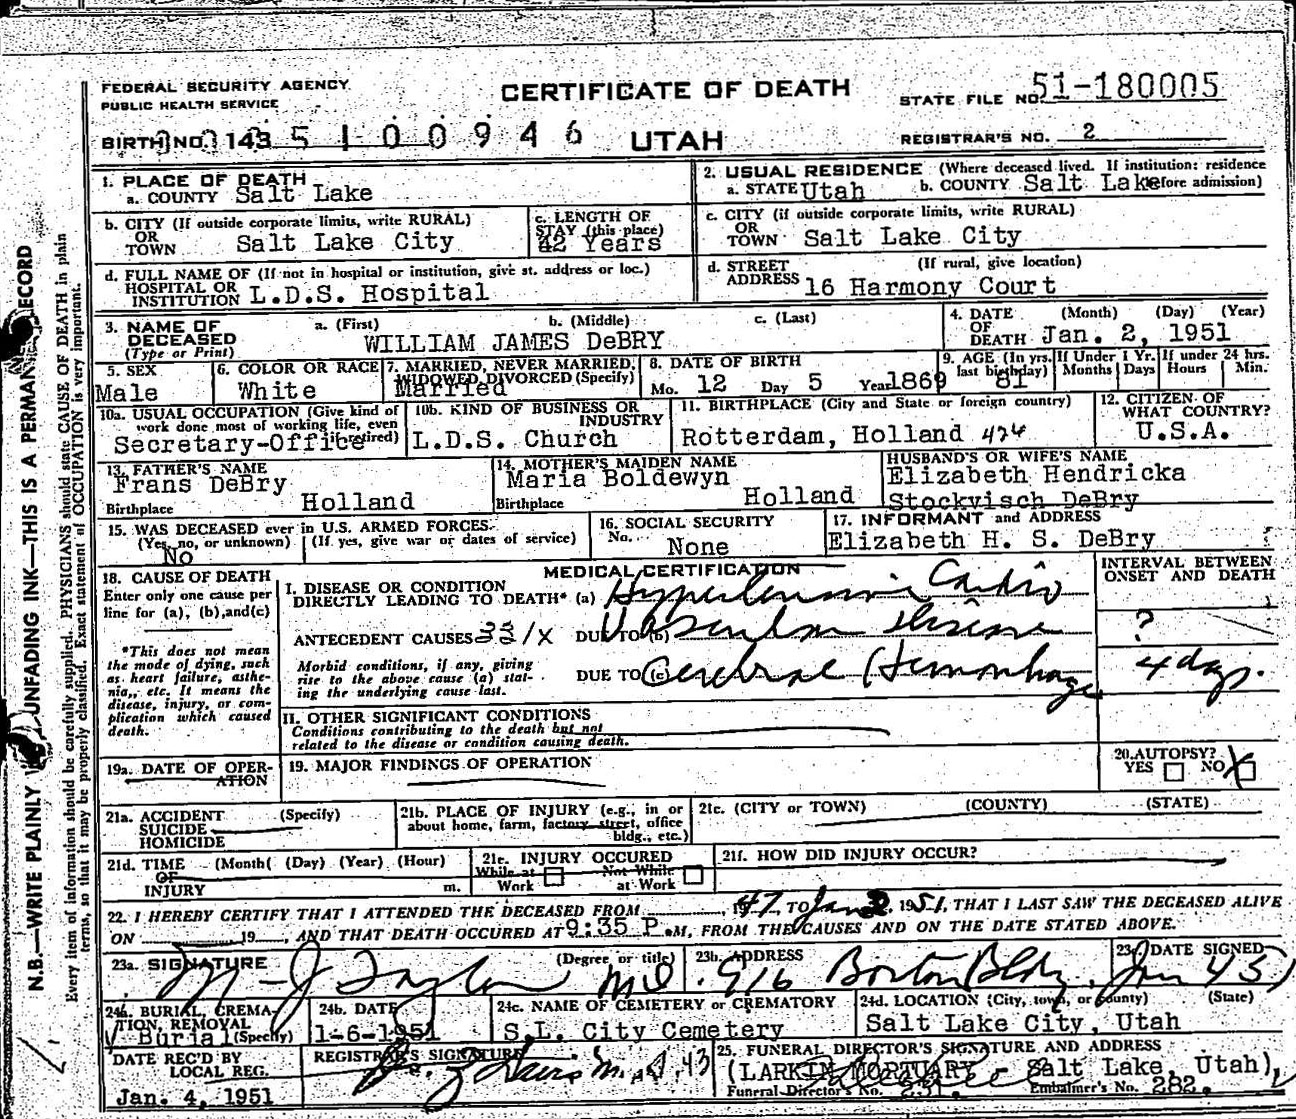 FEDERAL SECURITY AGENCY
PUBLIC HEALTH SERVICE
CERTIFICATE OF DEATH
STATE FILE NO. 51-180005
BIRTH NO. 143 5 1 0 0 9 4 6
UTAH
REGISTRAR'S NO. 2
1. PLACE OF DEATH
a. COUNTY Salt Lake
2. USUAL RESIDENCE (Where deceased lived. If institution: residence
a. STATE Utah b. COUNTY Salt Lake before admission)
b. CITY (If outside corporate limits, write RURAL)
OR
TOWN Salt Lake City
c. LENGTH OF
STAY (this place)
42 Years
c. CITY (if outside corporate limits, write RURAL)
OR
TOWN Salt Lake City
d. FULL NAME OF (If not in hospital or institution, give st. address or loc.)
HOSPITAL OR
INSTITUTION L.D.S. Hospital
d. STREET (If rural, give location)
ADDRESS 16 Harmony Court
3. NAME OF a. (First) b. (Middle) c. (Last)
DECEASED
(Type or Print) WILLIAM JAMES DeBRY
4. DATE (Month) (Day) (Year)
OF
DEATH Jan. 2, 1951
5. SEX
Male
6. COLOR OR RACE
White
7. MARRIED, NEVER MARRIED,
WIDOWED, DIVORCED (Specify)
Married
8. DATE OF BIRTH
Mo. 12 Day 5 Year 1869
9. AGE (In yrs.
last birthday)
81
If Under 1 Yr.
Months Days
If under 24 hrs.
Hours Min.
10a. USUAL OCCUPATION (Give kind of
work done most of working life, even
if retired)
Secretary-Office
10b. KIND OF BUSINESS OR
INDUSTRY
L.D.S. Church
11. BIRTHPLACE (City and State or foreign country)
Rotterdam, Holland 424
12. CITIZEN OF
WHAT COUNTRY?
U.S.A.
13. FATHER'S NAME
Frans DeBry
Birthplace Holland
14. MOTHER'S MAIDEN NAME
Maria Boldewyn
Birthplace Holland
HUSBAND'S OR WIFE'S NAME
Elizabeth Hendricka
Stockvisch DeBry
15. WAS DECEASED ever in U.S. ARMED FORCES.
(Yes, no, or unknown) (If yes, give war or dates of service)
No
16. SOCIAL SECURITY
No. None
17. INFORMANT and ADDRESS
Elizabeth H. S. DeBry
MEDICAL CERTIFICATION
18. CAUSE OF DEATH
Enter only one cause per
line for (a), (b), and (c)
*This does not mean
the mode of dying, such
as heart failure, asthe-
nia, etc. It means the
disease, injury, or com-
plication which caused
death.
I. DISEASE OR CONDITION
DIRECTLY LEADING TO DEATH* (a) Hypertensive Cardio
ANTECEDENT CAUSES 331X DUE TO (b) Vascular Disease
Morbid conditions, if any, giving
rise to the above cause (a) stat-
ing the underlying cause last.
DUE TO (c) Cerebral Hemorrhage
INTERVAL BETWEEN
ONSET AND DEATH
?
4 days.
II. OTHER SIGNIFICANT CONDITIONS
Conditions contributing to the death but not
related to the disease or condition causing death.
19a. DATE OF OPER-
ATION
19. MAJOR FINDINGS OF OPERATION
20. AUTOPSY?
YES NO X
21a. ACCIDENT (Specify)
SUICIDE
HOMICIDE
21b. PLACE OF INJURY (e.g., in or
about home, farm, factory street, office
bldg., etc.)
21c. (CITY or TOWN) (COUNTY) (STATE)
21d. TIME (Month( (Day) (Year) (Hour)
OF
INJURY m.
21e. INJURY OCCURED
While at Work Not While at Work
21f. HOW DID INJURY OCCUR?
22. I HEREBY CERTIFY THAT I ATTENDED THE DECEASED FROM 1947, TO Jan 2 1951, THAT I LAST SAW THE DECEASED ALIVE
ON 19, AND THAT DEATH OCCURED AT 9:35 P.M, FROM THE CAUSES AND ON THE DATE STATED ABOVE.
23a. SIGNATURE (Degree or title)
M J Taylor MD.
23b. ADDRESS
916 Boston Bldg.
23c DATE SIGNED
Jan 4 51
24a. BURIAL, CREMA-
TION, REMOVAL
(Specify) Burial
24b. DATE
1-6-1951
24c. NAME OF CEMETERY or CREMATORY
S.L. City Cemetery
24d. LOCATION (City, town, or County) (State)
Salt Lake City, Utah
DATE REC'D BY
LOCAL REG.
Jan. 4, 1951
REGISTRAR'S SIGNATURE
25. FUNERAL DIRECTOR'S SIGNATURE AND ADDRESS
(LARKIN MORTUARY - Salt Lake, Utah)
Funeral Director's No. 231. Embalmer's No. 282.
N.B.—WRITE PLAINLY UNFADING INK—THIS IS A PERMANENT RECORD
Every item of information should be carefully supplied. PHYSICIANS should state CAUSE OF DEATH in plain
terms, so that it may be properly classified. Exact statement of OCCUPATION is very important.